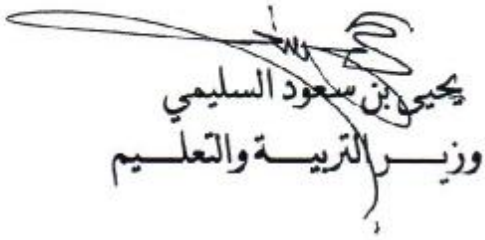 يحيى بن سعود السليمي
وزير التربية والتعليم